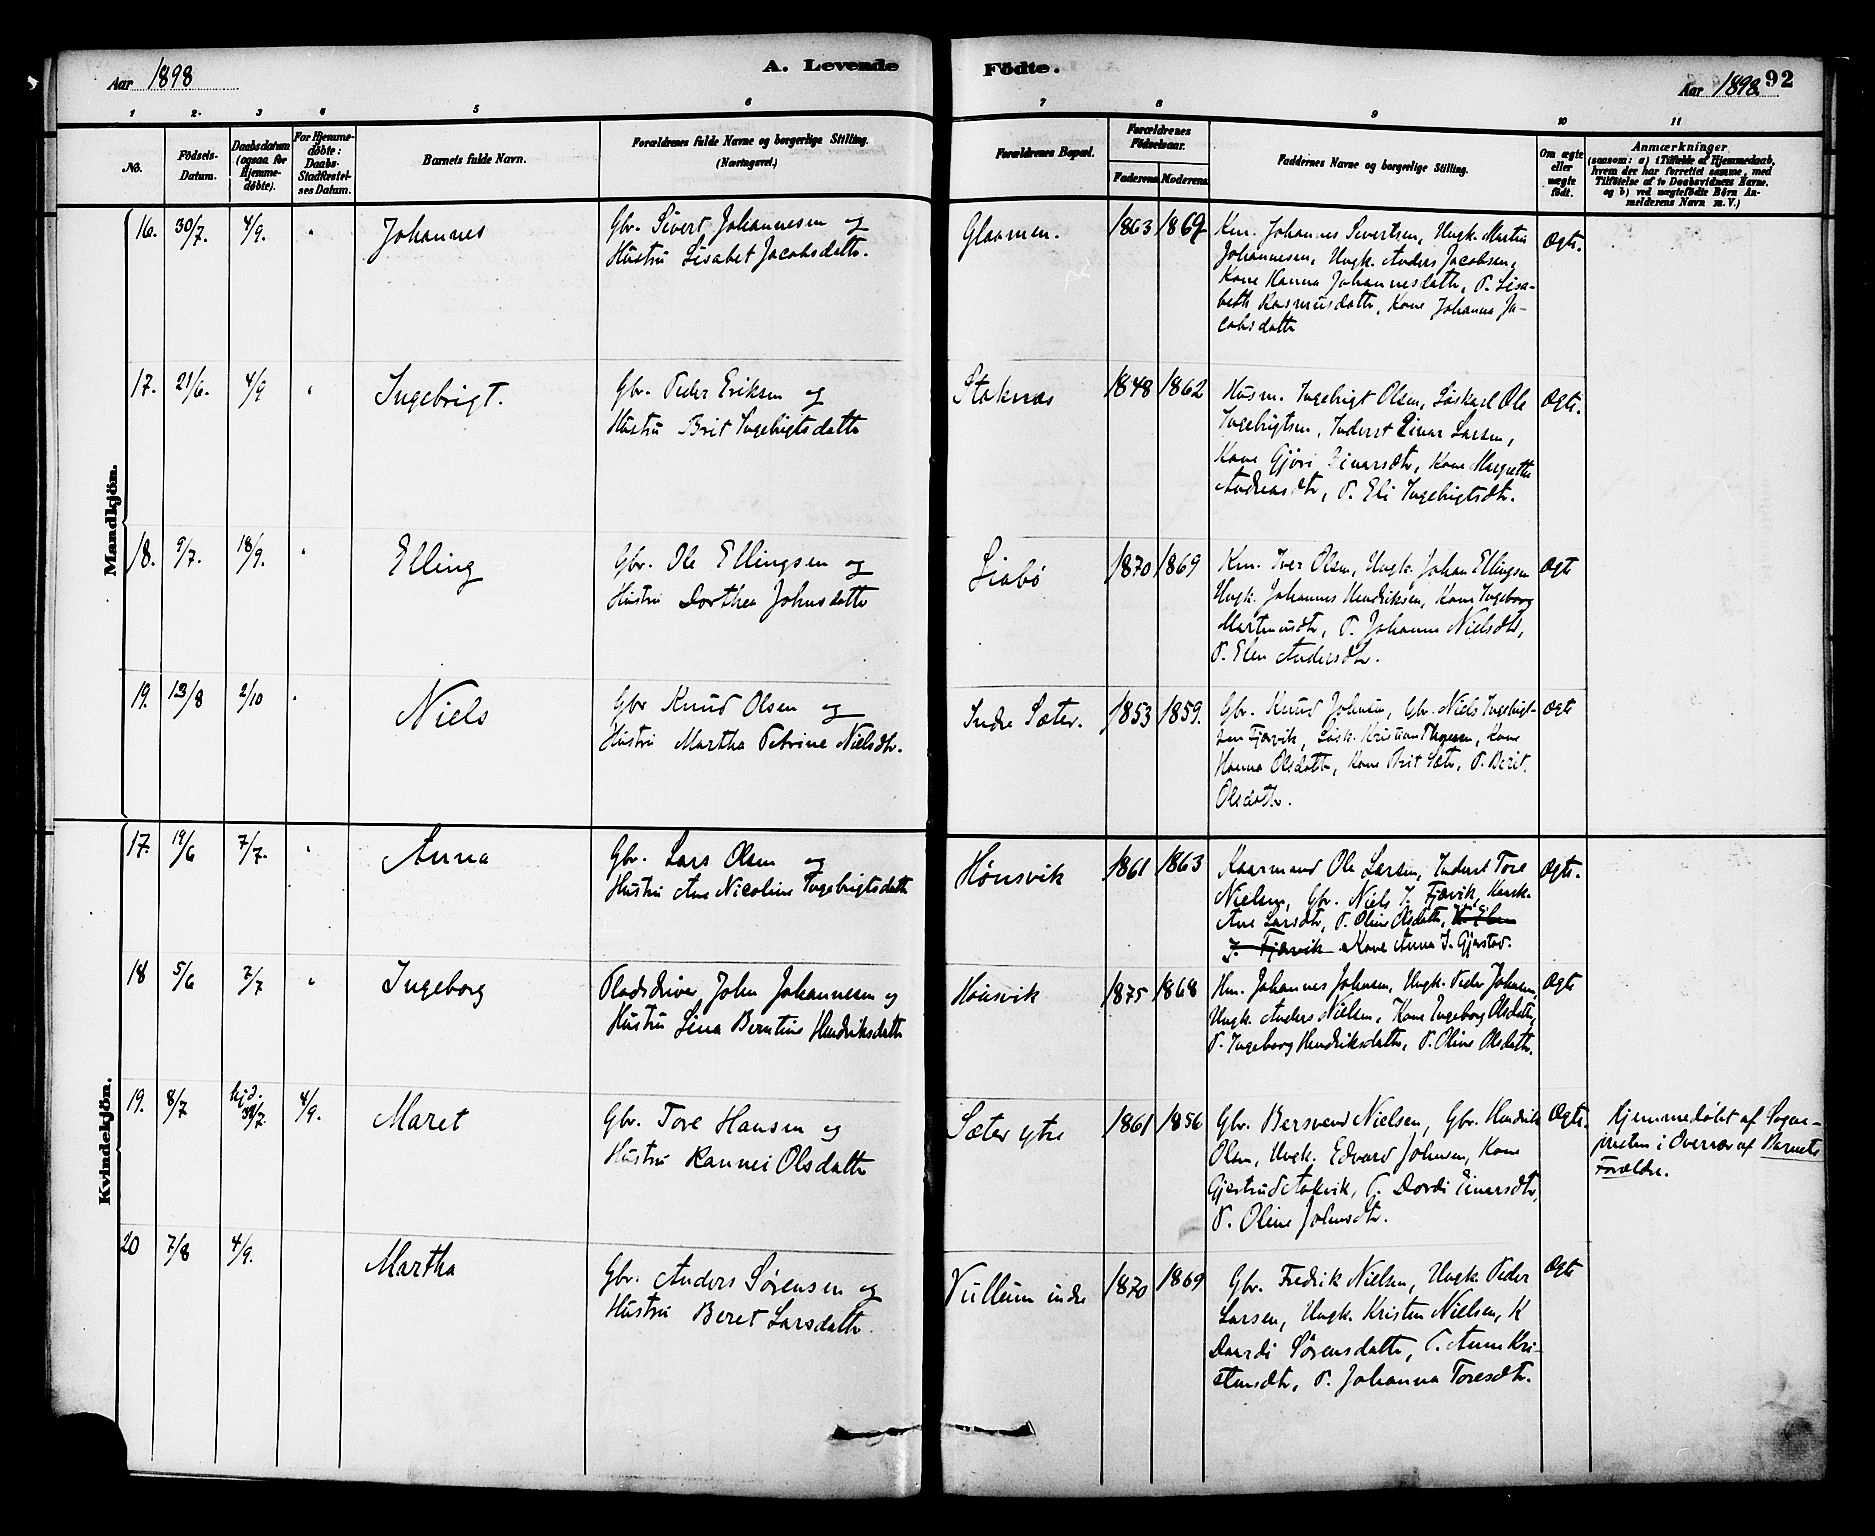 Aar 1898
A. Levende
Födte.
Aar 1898.
92
1
2.
3
4
5
6
7
8
9
10
11
No.
Födsels-
Datum.
Daabsdatum
(ogsaa for
Hjemme-
døbte).
For Hjemme-
döbte:
Daabs-
Stadfæstel-
ses Datum.
Barnets fulde Navn.
Forældrenes fulde Navne og borgerlige Stilling.
(Næringsvei.)
Forældrenes Bopæl.
Forældrenes
Födselsaar.
Faderens.
Moderens.
Faddernes Navne og borgerlige Stilling.
Om ægte
eller
uægte
født.
Anmærkninger
(saasom: a) i Tilfælde af Hjemmedaab,
hvem der har forrettet samme, med
Tilføielse af to Daabsvidners Navne,
og b) ved uægtefødte Börn An-
melderens Navn m. V.)
Mandkjön.
16. 30/7. 4/9. " Johannes
Gbr. Sivert Johannesen og
Hustru Lisabet Jacobsdattr.
Glaamen. 1863 1869
Km. Johannes Sivertsen, Ungk. Martin
Johannesen, Ungk. Anders Jacobsen,
Kone Hanna Johannesdattr, P. Lisa-
beth Rasmusdattr, Kone Johanna Ja-
cobsdattr
Ægte.
17. 21/6. 4/9 " Ingebrigt.
Gbr. Peder Eriksen og
Hustru Brit Ingebrigtsdattr
Staknæs 1848 1862
Husm. Ingebrigt Olsen, Løskarl Ole
Ingebrigtsen, Inderst Einar Larsen,
Kone Gjøri Einarsdtr, Kone Margrethe
Andreasdtr, P. Eli Ingebrigtsdtr.
Ægte.
18. 9/7. 18/9. " Elling
Gbr. Ole Ellingsen og
Hustru Dorthea Johnsdattr
Liabø 1870 1869
Km. Iver Olsen, Ungk. Johan Ellingsen
Ungk. Johannes Hendriksen, Kone Ingeborg
Martinusdtr, P. Johanna Nielsdtr,
P. Elen Andersdtr.
Ægte
19. 13/8 2/10 " Niels
Gbr Knud Olsen og
Hustru Martha Petrine Nielsdtr.
Indre Sæter. 1853 1859.
Gbr. Knud Johnsen, Gbr. Niels Ingebrigt-
sen Fjærvik, Løsk. Kristian Thoresen, Kone
Hanna Olsdattr, Kone Brit Sæter, P. Berit
Olsdattr.
Ægte
Kvindekjön.
17. 19/6 7/7. " Anna
Gbr. Lars Olsen og
Hustru Ane Nicoline Ingebrigtsdattr
Hönsvik 1861 1863
Kaarmand Ole Larsen, Inderst Tore
Nielsen, Gbr. Niels I. Fjærvik, Kaark.
Ane Larsdtr, P. Oline Olsdattr, K. Elen
I. Fjærvik Kone Anna I. Gjerstad.
Ægte.
18 5/6 7/7 " Ingeborg
Pladsdriver John Johannesen og
Hustru Lina Berntine Hendriksdattr
Hönsvik 1875 1868
Hm. Johannes Johnsen, Ungk. Peder Johnsen,
Ungk. Anders Nielsen, Kone Ingeborg Olsdattr,
P. Ingeborg Hendriksdattr, P. Oline Olsdattr.
Ægte
19. 8/7 hjd. 31/7. 4/9. Maret
Gbr. Tore Hansen og
Hustru Rannei Olsdattr
Sæter ytre 1861 1856
Gbr. Bersvend Nielsen, Gbr. Hendrik
Olsen, Ungk. Edvard Johnsen, Kone
Gjertrud Aakvik, P. Dordi Einarsdtr,
P. Oline Johnsdtr.
Ægte.
Hjemmedøbt af Sogne-
præsten i Overvær af Barnets
Forældre.
20 7/8 4/9. Martha
Gbr. Anders Sørensen og
Hustru Beret Larsdattr.
Vullum indre 1870 1869
Gbr. Fredrik Nielsen, Ungk. Peder
Larsen, Ungk. Kristen Nielsen, K
Daardi Sørensdattr, P. Anne Kri-
stensdtr, P. Johanna Toresdtr.
Ægte